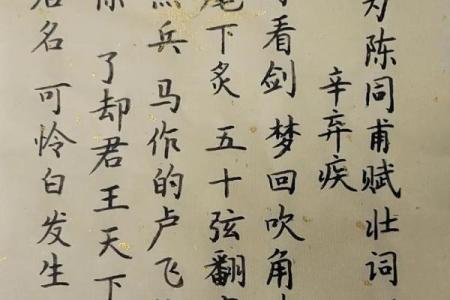 为陈同甫赋壮词
辛弃疾
看剑 梦回吹角
下炙 五十弦翻
兵 马作的卢飞
了却君王天下
名 可怜白发生